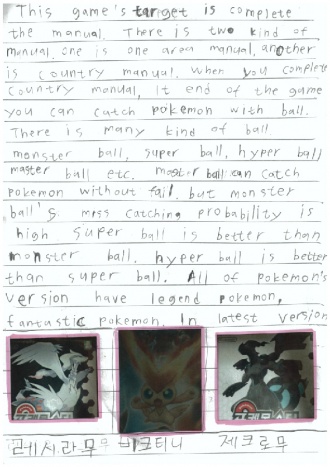 This game's target is complete
the manual. There is two kind of
manual, one is one area manual, another
is country manual. When you complete
country manual, It end of the game
you can catch pokemon with ball.
There is many kind of ball
monster ball, super ball, hyper ball
master ball etc. mastor ball can catch
pokemon without fail. but monster
ball's miss catching probability is
high super ball is better than
monster ball. hyper ball is better
than super ball. All of pokemon's
version have legend pokemon,
fantastic pokemon. In latest version
레시라무 비크티니 제크로무